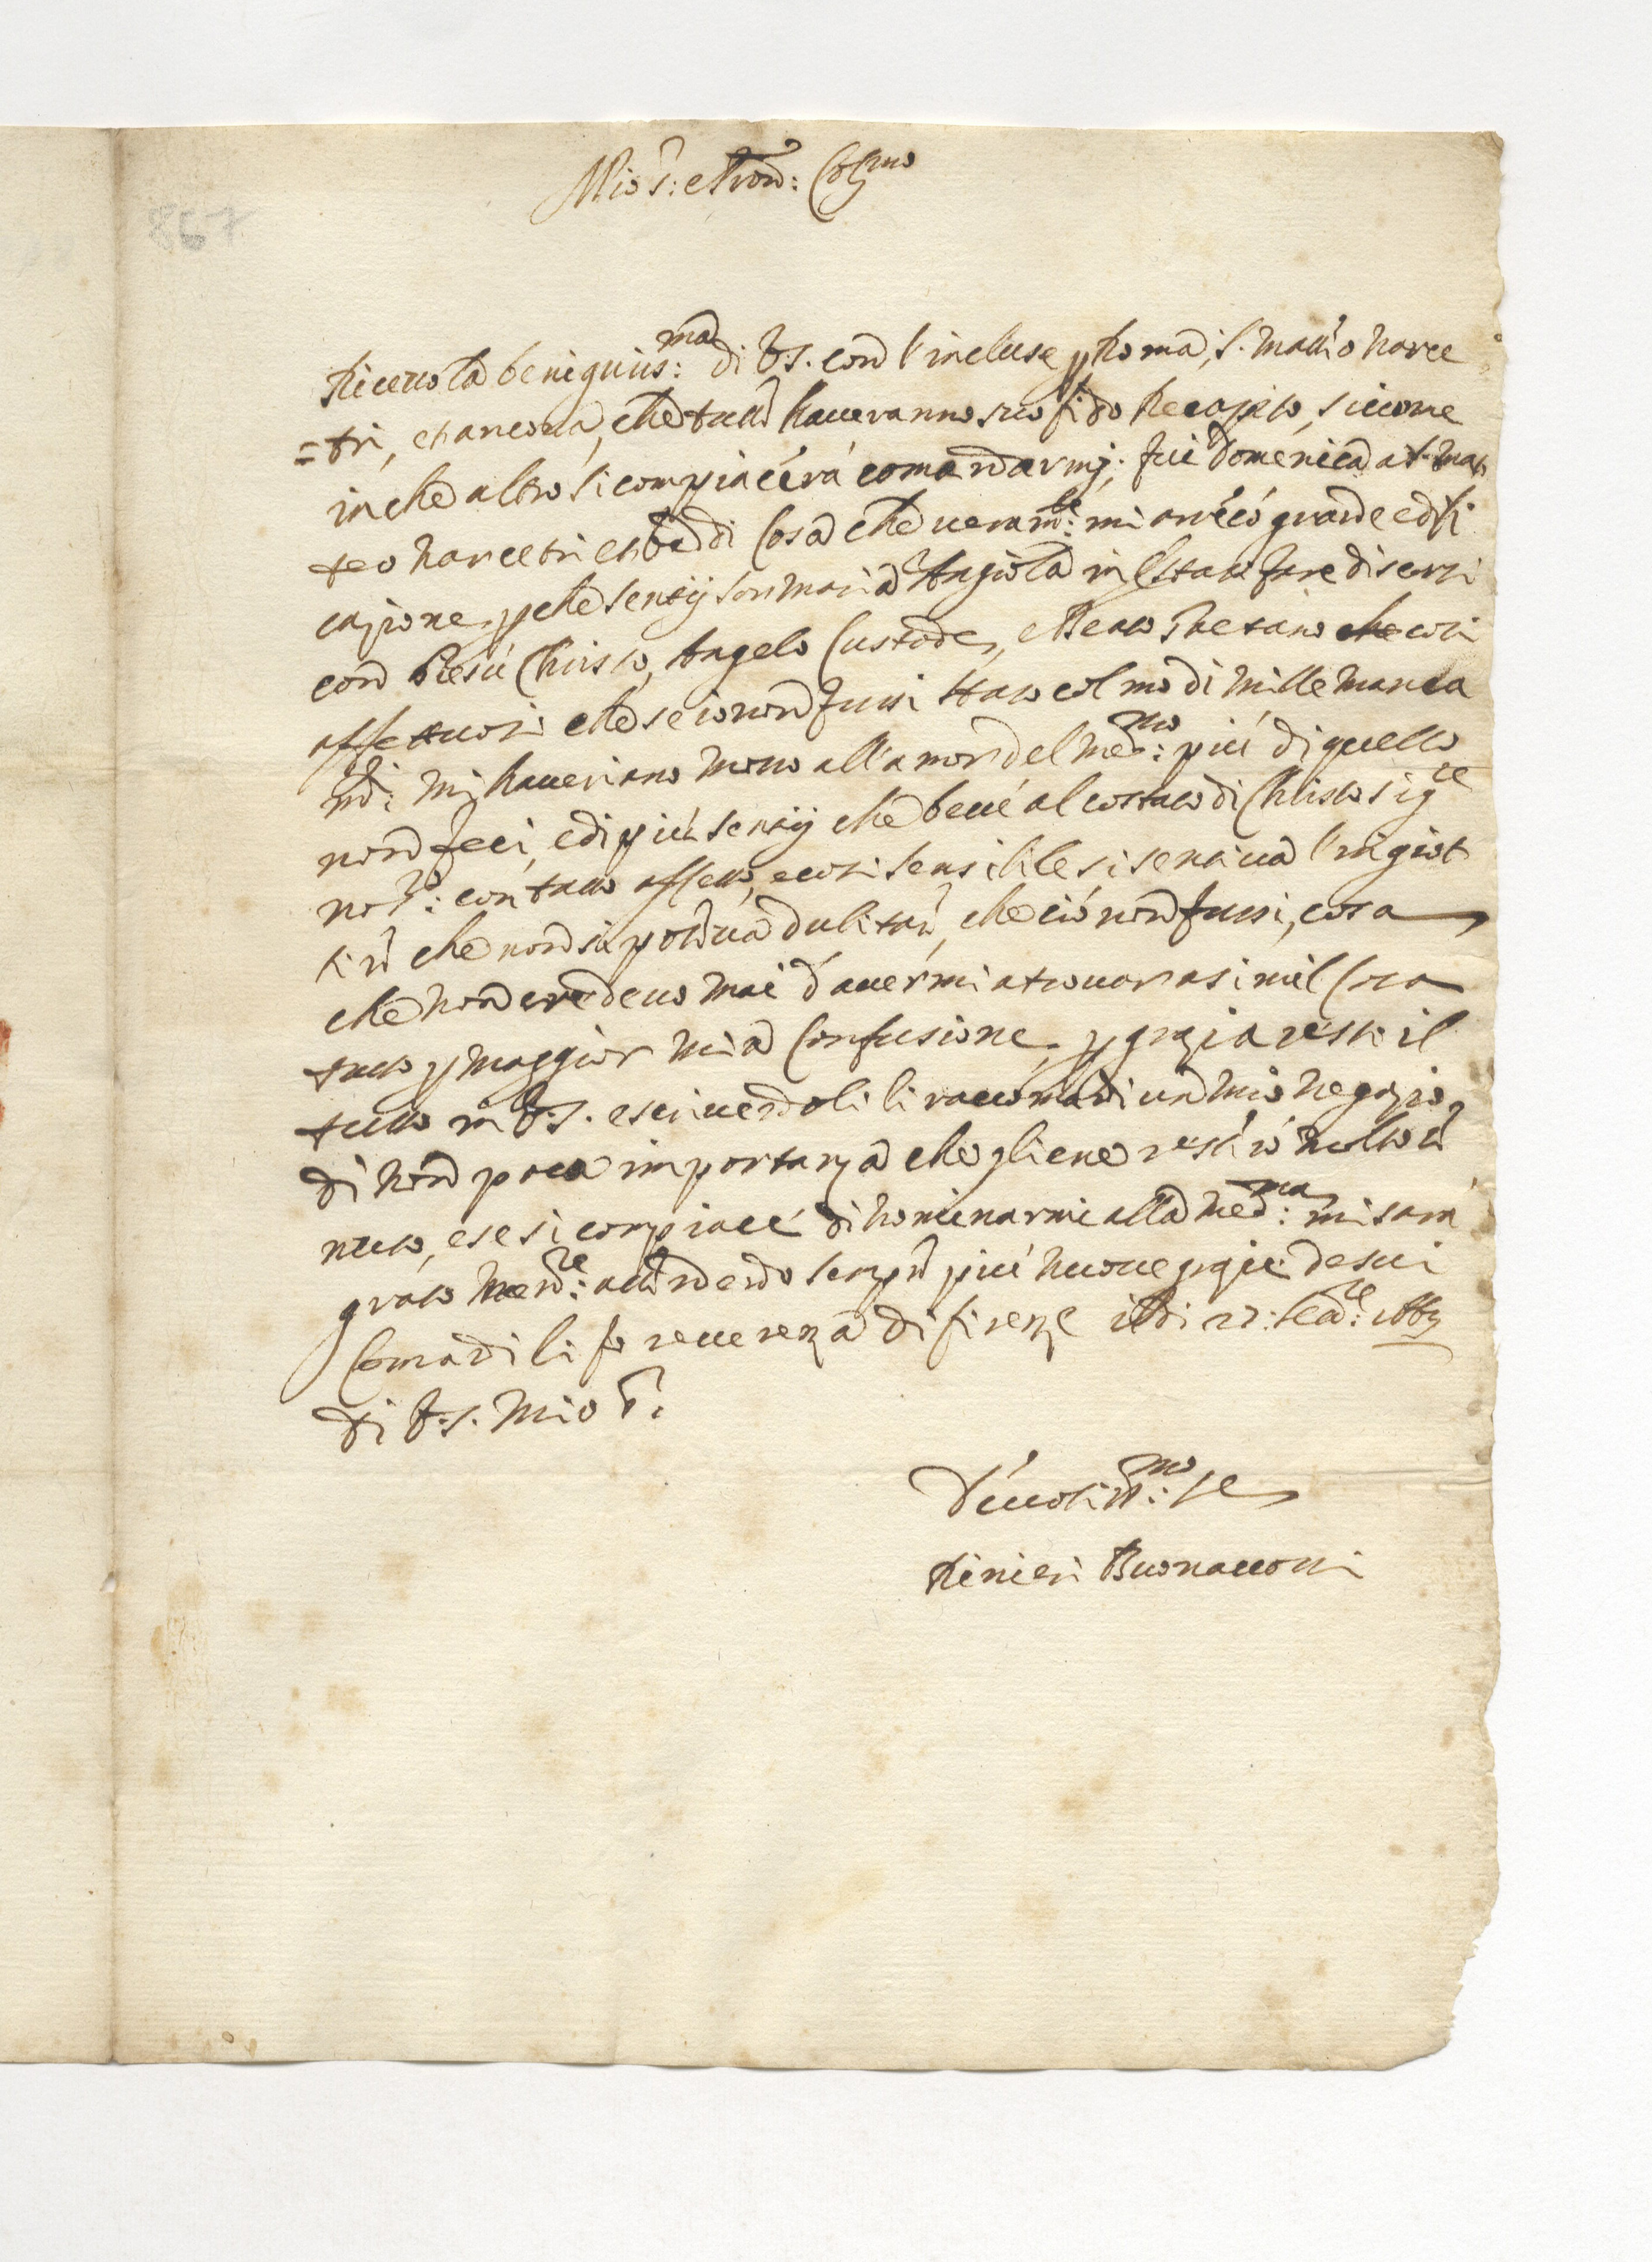 Mio S: e Pron: Col.mo
867
Ricevo la benignis:ma di V.S. con l'incluse p Roma, S. Matteo Narce
=tri, et ancona, che tutte haveranno suo fido Recapito, siccome
in che altro si compiacerà comandarmj: fui Domenica a S. Mat
teo Narcetri et Viddi Cosa che veram:te mi arrecò grande edifi
cazione, p che sentij Suor Maria Angiola in estasi fare discorsi
con Giesù Christo, Angelo Custode, e Beato Gaetano che così
affettuosi che se io non fussi stato colmo di mille manca
ndi: mi haveriano mosso all'amor del Med:mo più di quello
non feci, e di più sentij che bevé al costato di Christo sig:re
no: con tanto affetto, e così sensibile si sentiva l'ingiot
tire che non si poteva dubitare, che ciò non fussi, cosa
che non credevo mai d'avermi a trovar a simil Cosa
tutto p maggior mia Confusione, p grazia resti il
tutto in V.S. e scrivendoli li raccomandi un mio negozio
di non poca importanza che gliene resterò molto te
nuto, e se si compiace di nominarmi alla Med:ma mi sarà
grato mentre: attendendo sempre più nuove grazie de suoi
Comandi li fo reverenza di firenze
di V.S. Mio S:
Devotiss:mo se
Rinieri Buonaccorsi